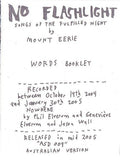 NO FLASHLIGHT
SONGS OF THE FULFILLED NIGHT
by
MOUNT EERIE
WORDS BOOKLET
RECORDED
between October 19th 2004
and January 30th 2005
NOWHERE
by Phil Elvrum and Geneviève
Elvrum and Jason Wall
RELEASED in mid 2005
AUSTRALIAN VERSION